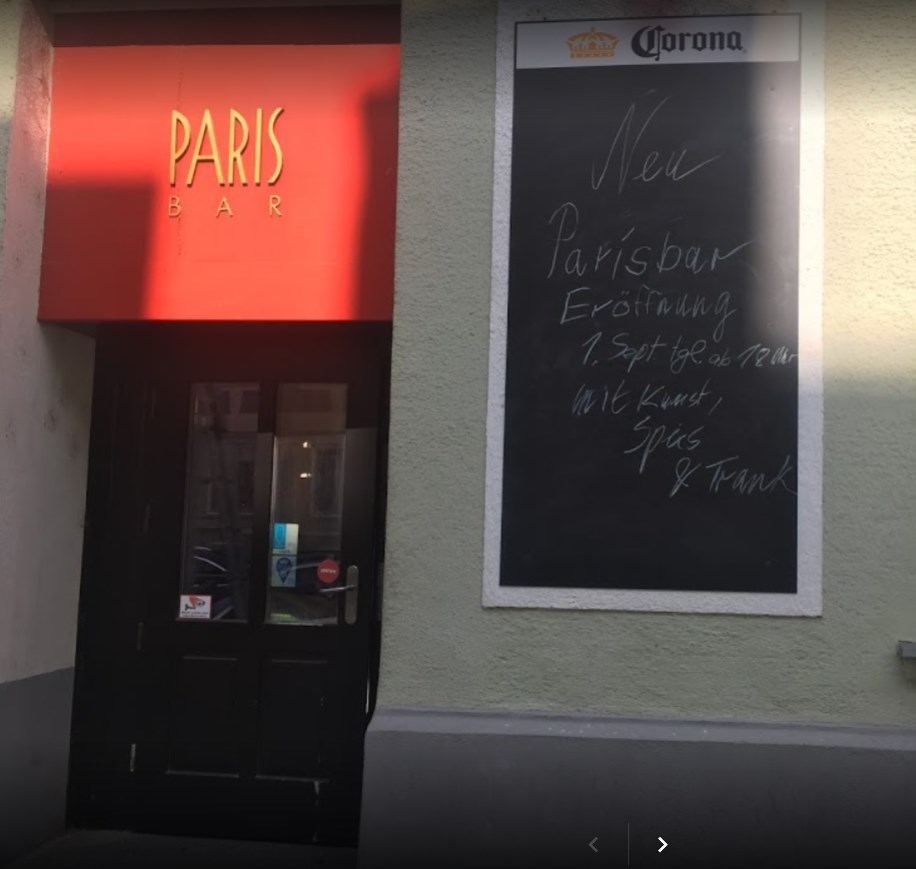 PARIS
BAR
Corona
Neu
Parisbar
Eröffnung
1. Sept tgl. ab 18 Uhr
mit Kunst,
Speis
& Trank